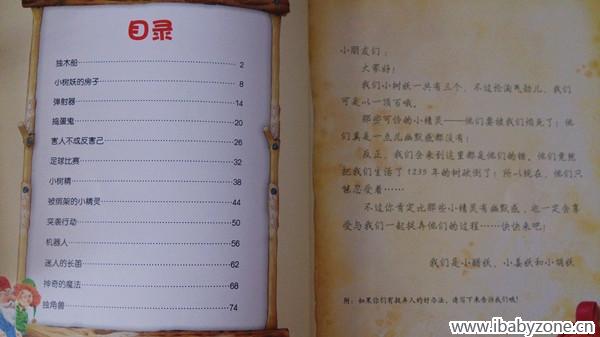 目录
独木船 2
小树妖的房子 8
弹射器 14
捣蛋鬼 20
害人不成反害己 26
足球比赛 32
小树精 38
被绑架的小精灵 44
突袭行动 50
机器人 56
迷人的长笛 62
神奇的魔法 68
独角兽 74
小朋友们：
大家好！
我们小树妖一共有三个，不过论淘气劲儿，我们
可是以一顶百哦。
那些可怜的小精灵——他们要被我们烦死了！他
们真是一点儿幽默感都没有！
反正，我们会来到这里都是他们的错。他们竟然
把我们生活了1235年的树砍倒了！所以现在，他们只
能忍受着……
不过你肯定比那些小精灵有幽默感，也一定会享
受与我们一起捉弄他们的过程……快快来吧！
我们是小丽妖、小美妖和小萌妖
附：如果你们有捉弄人的好办法，请写下来告诉我们哦！
www.ibabyzone.cn